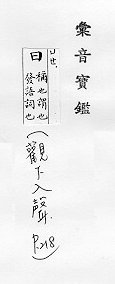 彙音寶鑑
ㄩㄝ
曰 稱也謂也
發語詞也
(觀下入聲 P.218)